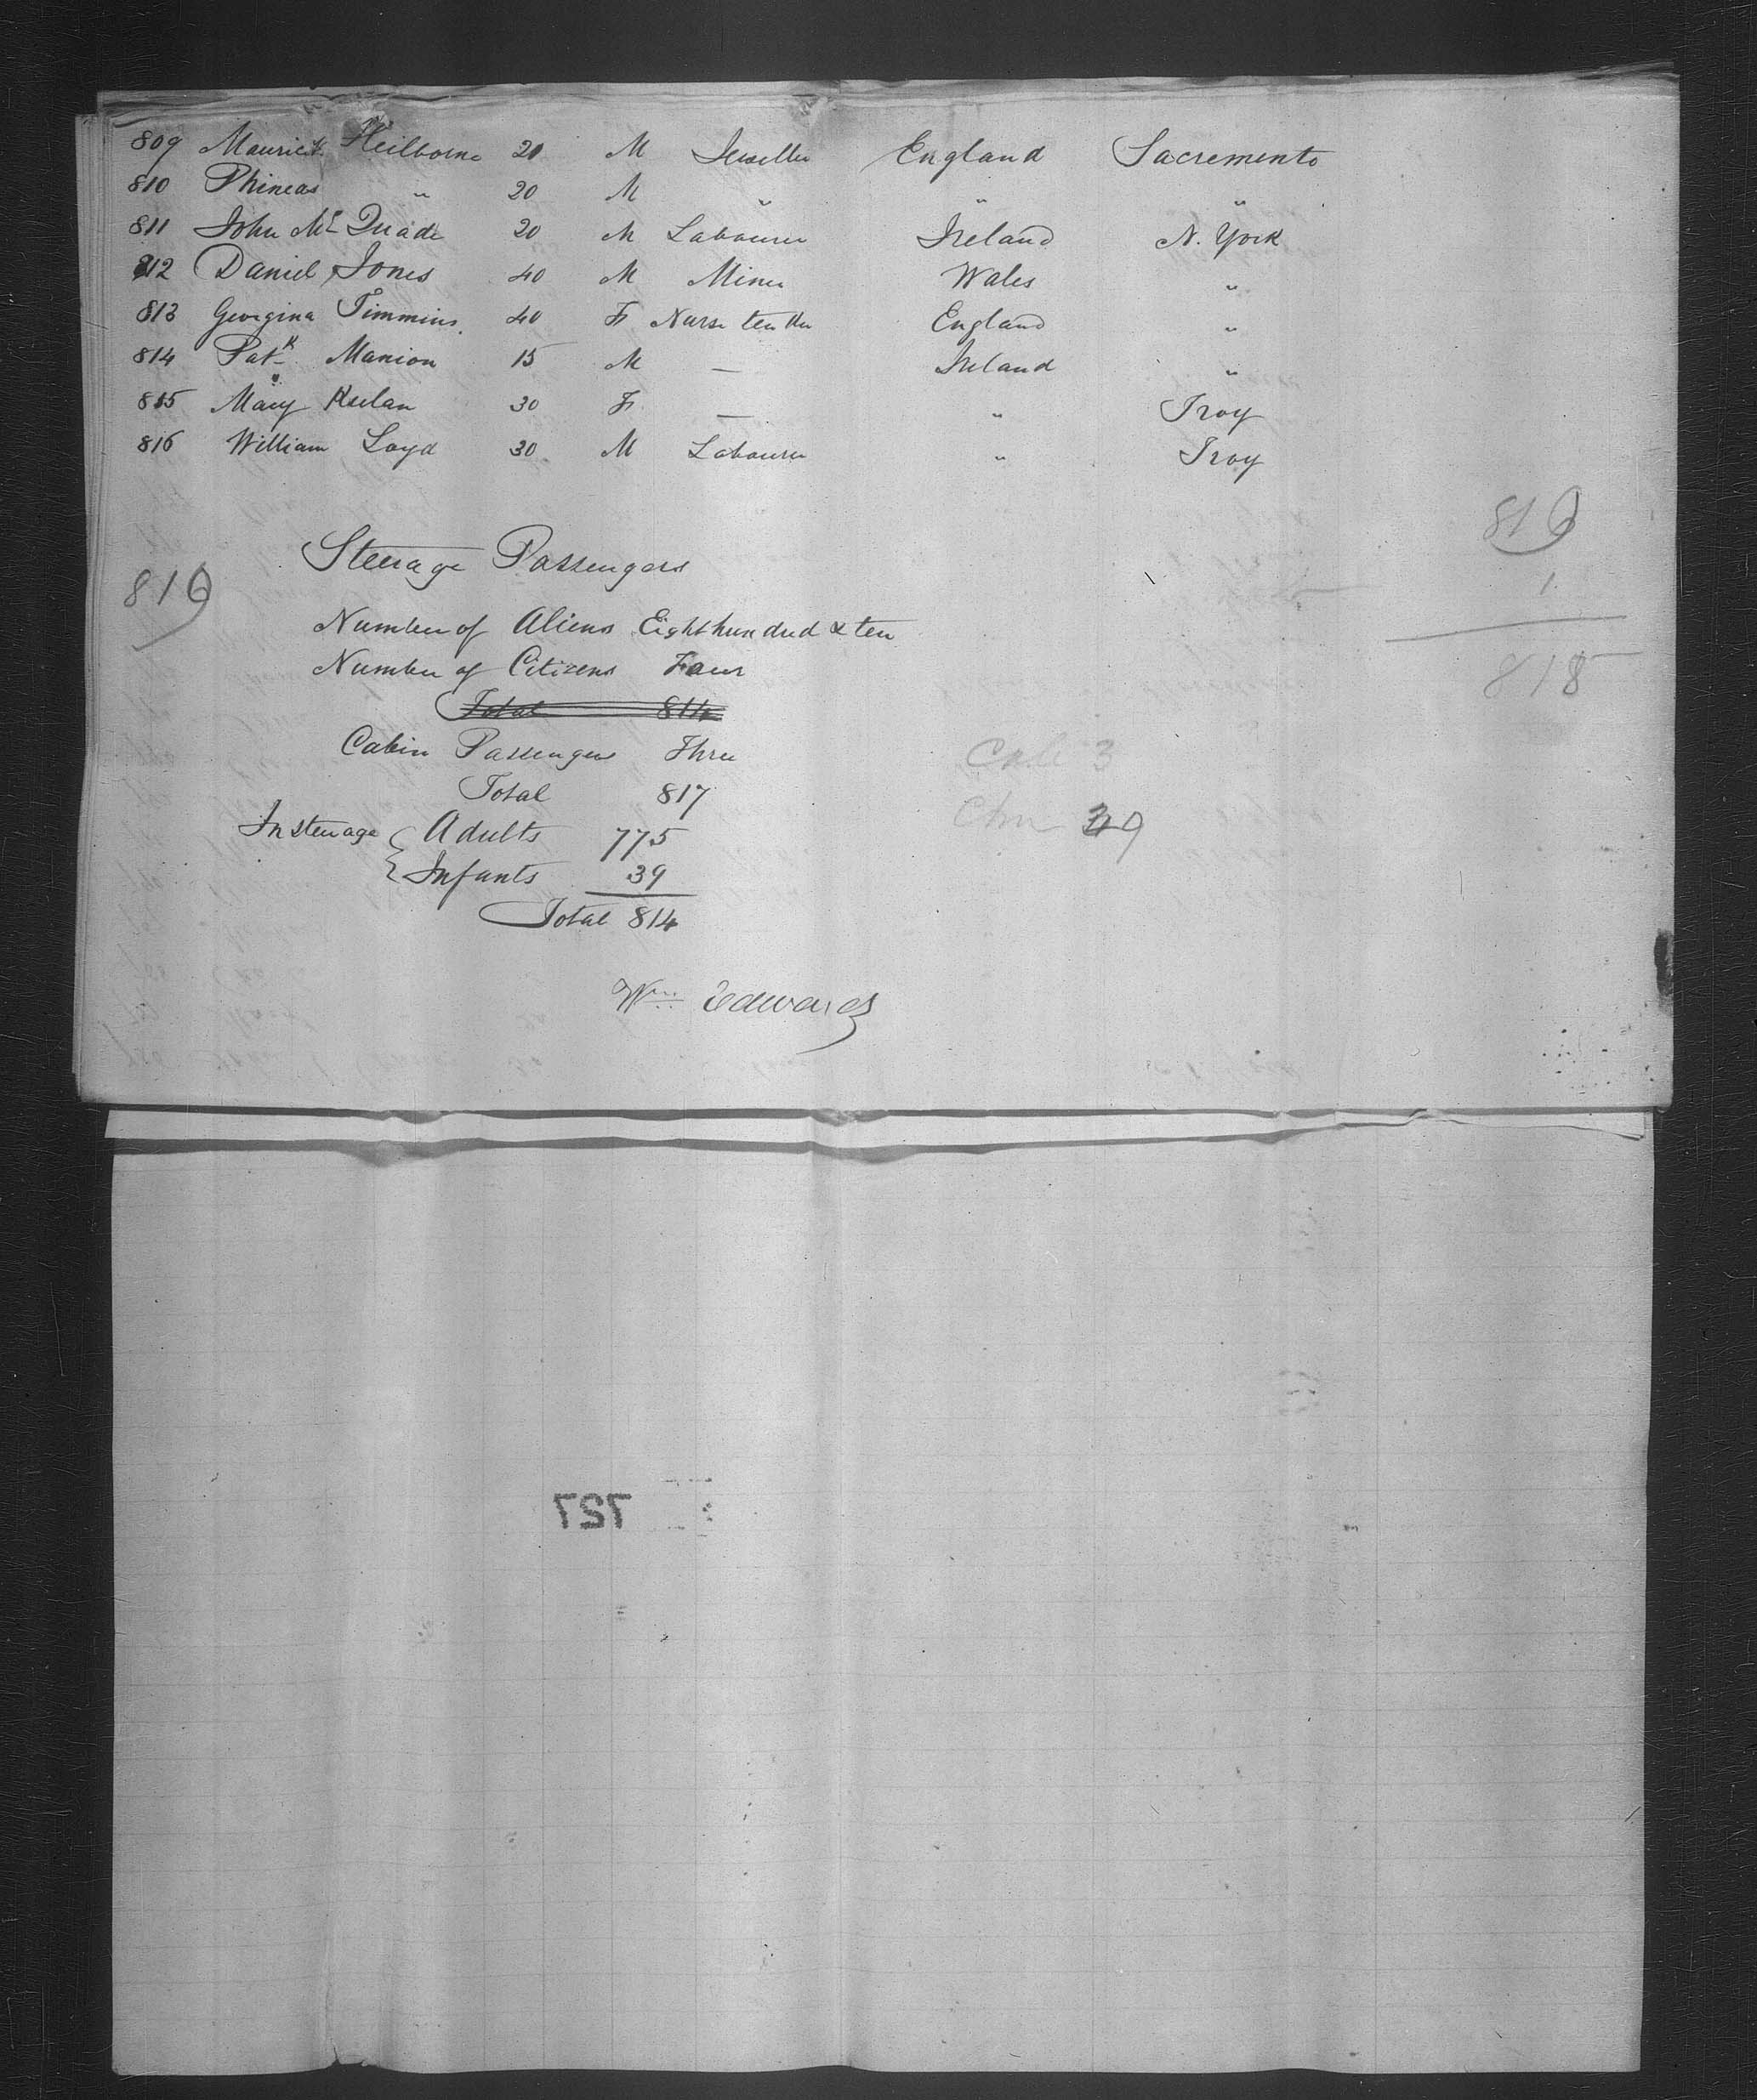 809 Maurice Heilborne 20 M Jeweller England Sacremento
810 Phineas " 20 M " " "
811 John Mc Quade 20 M Labourer Ireland N. York
812 Daniel Jones 40 M Miner Wales "
813 Georgina Timmins 40 F Nurse England "
814 Patk Manion 15 M — Ireland "
815 Mary 30 F — " Troy
816 William Loyd 30 M Labourer " Troy
816
1
818
Steerage Passengers
819
Number of Aliens Eighthundred & ten
Number of Citizens Four
Total 814
Cabin Passengers Three
Total 817
In steerage { Adults 775
Infants 39
Total 814
3
39
Wm Edwards
727